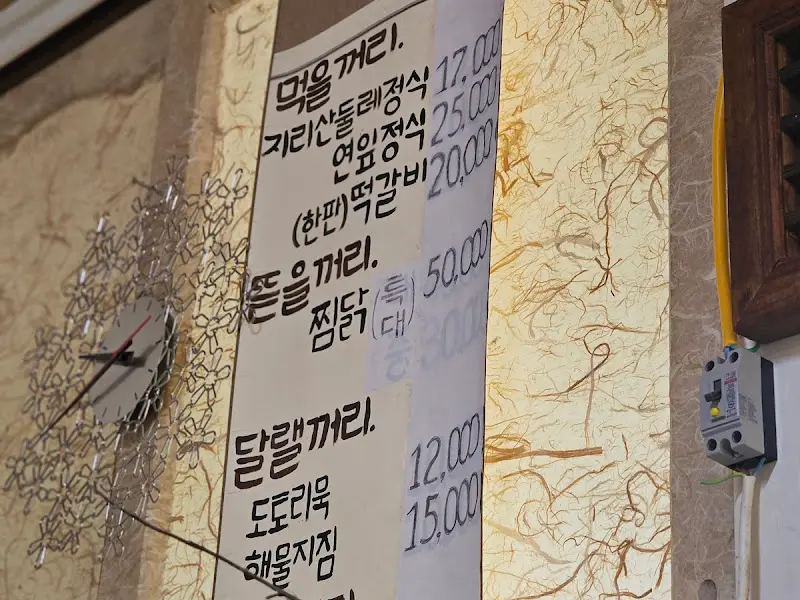 먹을꺼리.
지리산둘레정식 17,000
연잎정식 25,000
(한판)떡갈비 20,000
뜯을꺼리.
찜닭(특대) 50,000
달랠꺼리.
도토리묵 12,000
해물지짐 15,000